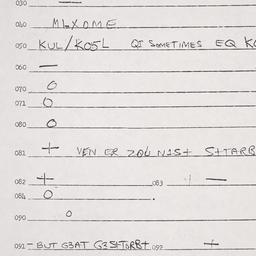 030 —
040 MLXOME
050 KUL/KOSL QI SOMETIMES EQ
060 —
070 O
071 O
080 O
081 + VEN ER
082 + 083 + —
084 O
090 O
091 - BUT G3AT G3SI+TORB+ 092 +